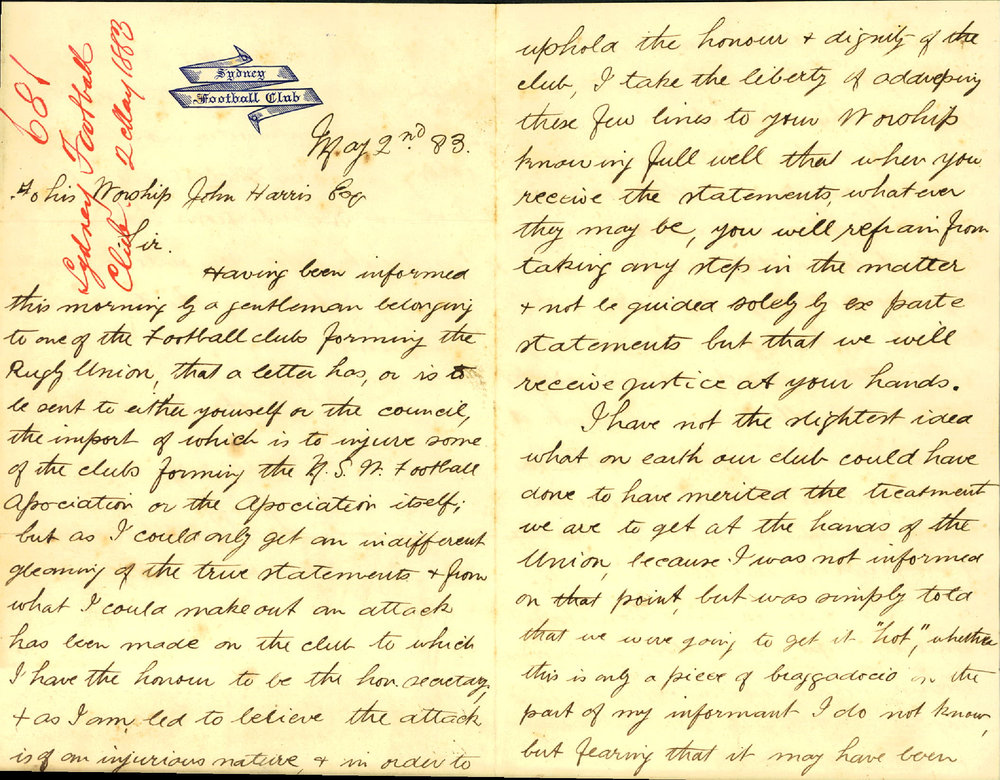 681
Sydney Football
Club. 2 May 1883
Sydney
Football Club
May 2nd. 83.
To his Worship John Harris Esq
Sir.
Having been informed
this morning by a gentleman belonging
to one of the Football clubs forming the
Rugby Union, that a letter has, or is to
be sent to either yourself or the council,
the import of which is to injure some
of the clubs forming the N. S. W. Football
Association or the Association itself;
but as I could only get an indifferent
gleaning of the true statements & from
what I could make out an attack
has been made on the club to which
I have the honour to be the hon. secretary,
& as I am led to believe the attack
is of an injurious nature, & in order to
uphold the honour & dignity of the
club, I take the liberty of addressing
these few lines to your Worship
knowing full well that when you
receive the statements, whatever
they may be, you will refrain from
taking any step in the matter
& not be guided solely by ex parte
statements but that we will
receive justice at your hands.
I have not the slightest idea
what on earth our club could have
done to have merited the treatment
we are to get at the hands of the
Union, because I was not informed
on that point, but was simply told
that we were going to get it "hot", whether
this is only a piece of braggadocio on the
part of my informant I do not know,
but fearing that it may have been